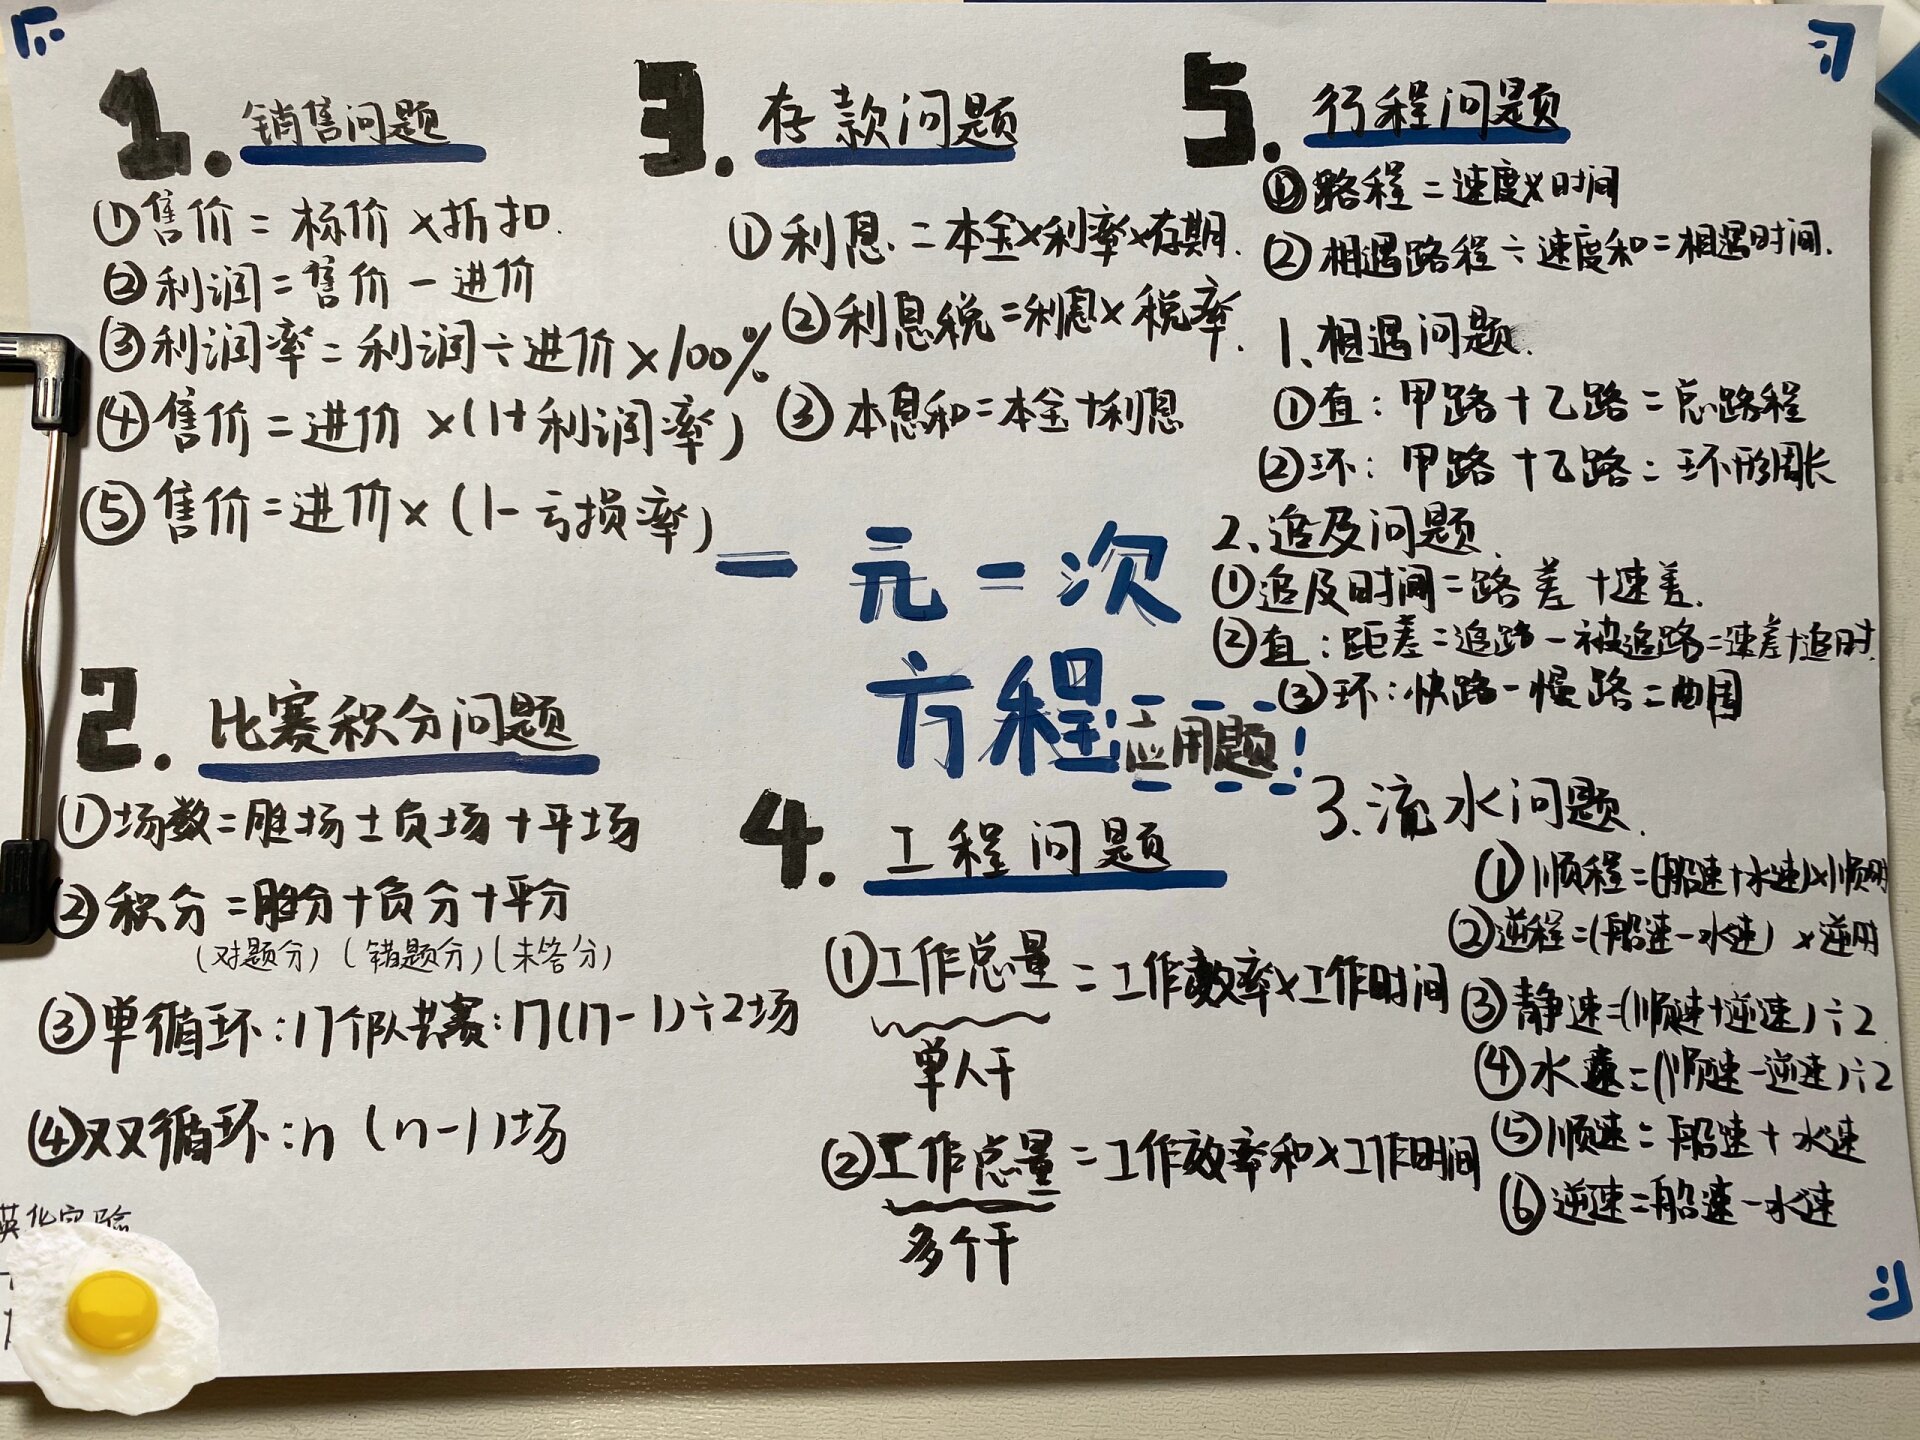 1. 销售问题
①售价=标价×折扣.
②利润=售价-进价
③利润率=利润÷进价×100%
④售价=进价×(1+利润率)
⑤售价=进价×(1-亏损率)
2. 比赛积分问题
①场数=胜场+负场+平场
②积分=胜分+负分+平分
(对题分)(错题分)(未答分)
③单循环:n个队共赛:n(n-1)÷2场
④双循环:n(n-1)场
英华实验
3. 存款问题
①利息=本金×利率×存期.
②利息税=利息×税率.
③本息和=本金+利息
一元一次
方程应用题!
4. 工程问题
①工作总量=工作效率×工作时间
单人干
②工作总量=工作效率和×工作时间
多个干
5. 行程问题
①路程=速度×时间
②相遇路程÷速度和=相遇时间.
1、相遇问题.
①直:甲路+乙路=总路程
②环:甲路+乙路=环形周长
2、追及问题.
①追及时间=路差+速差.
②直:距差=追路-被追路=速差+追时.
③环:快路-慢路=曲围
3、流水问题.
①顺程=(船速+水速)×顺时
②逆程=(船速-水速)×逆用
③静速=(顺速+逆速)÷2
④水速=(顺速-逆速)÷2
⑤顺速=船速+水速
⑥逆速=船速-水速